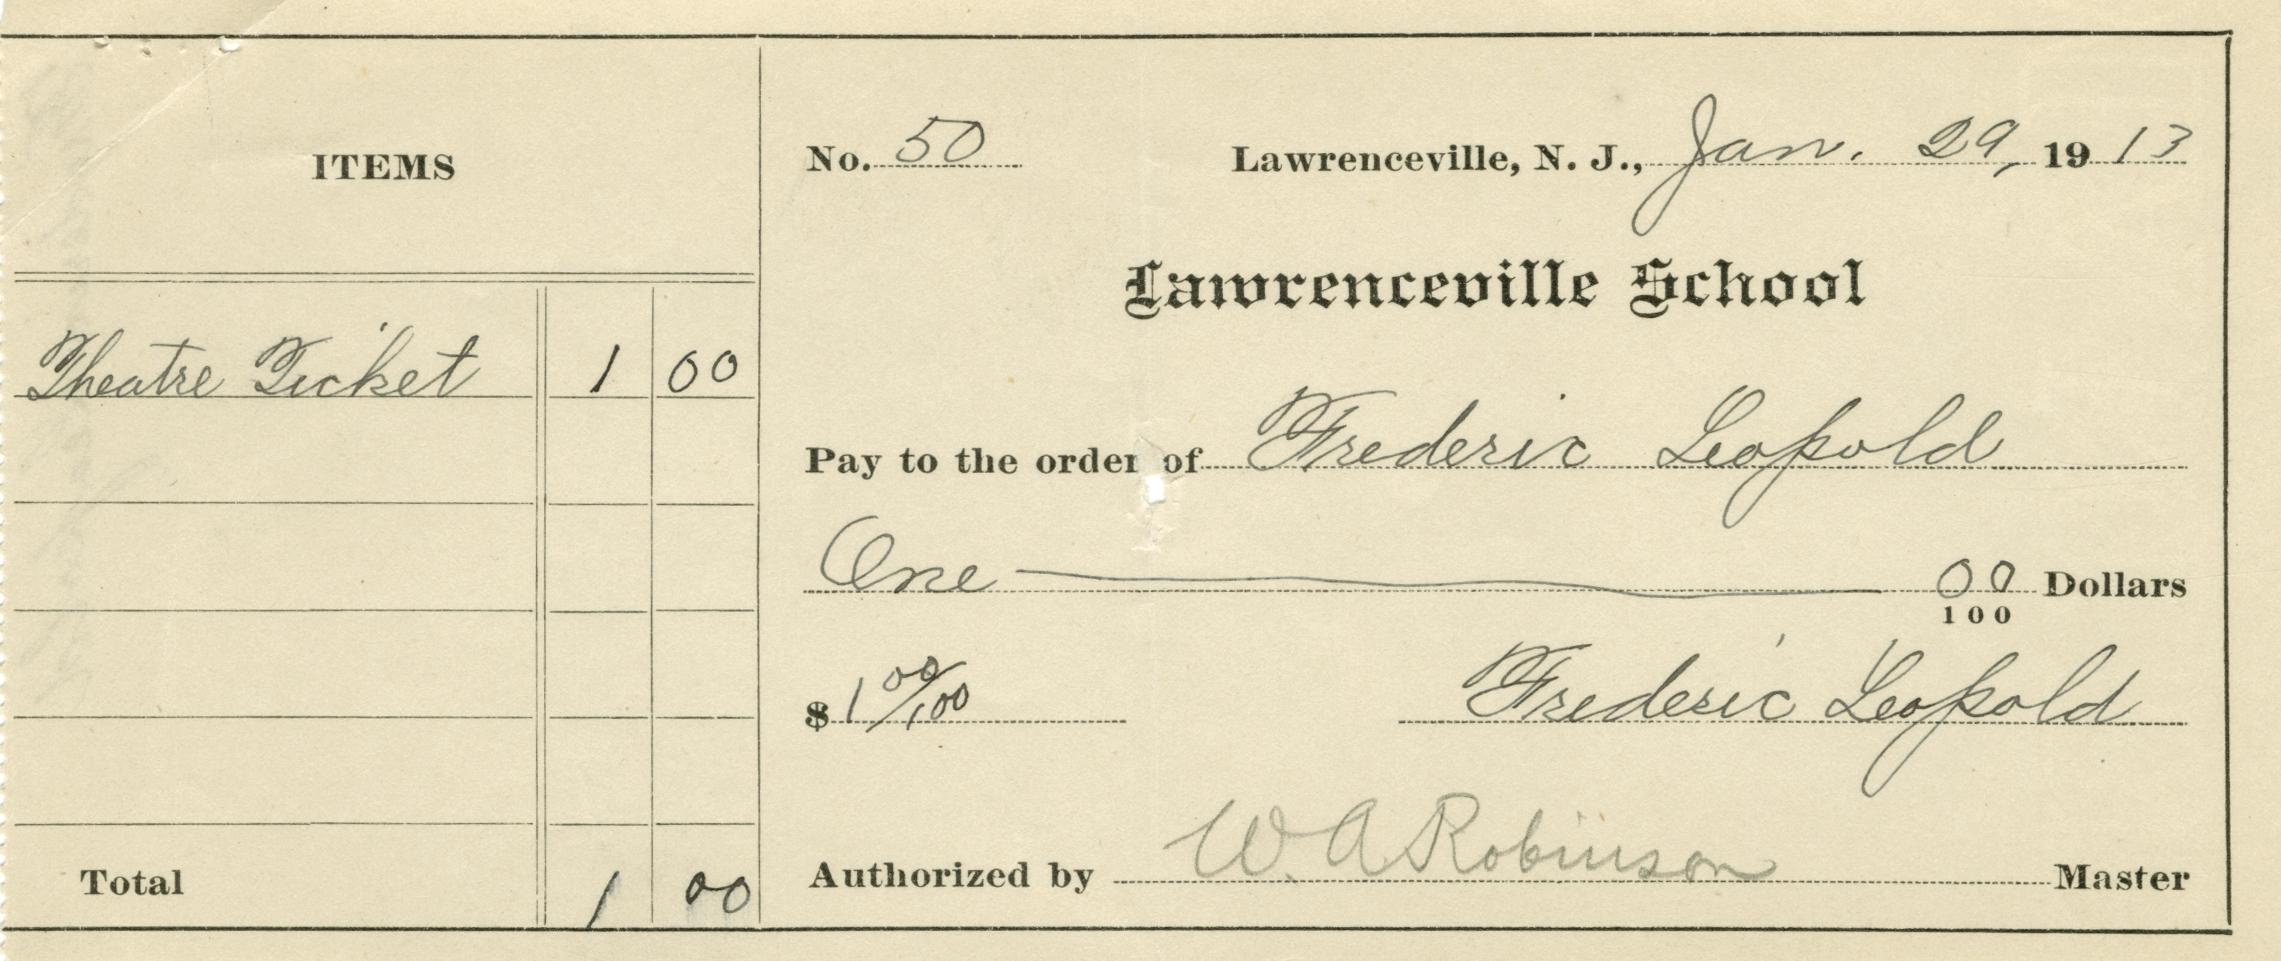 ITEMS
Theatre Ticket 1 00
Total 1 00
No. 50 Lawrenceville, N. J., Jan. 29, 1913
Lawrenceville School
Pay to the order of Frederic Leopold
One 00/100 Dollars
$ 1 00/100 Frederic Leopold
Authorized by W. A Robinson Master